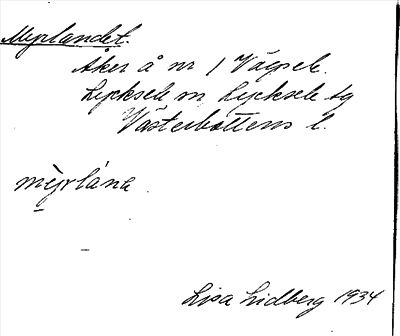 Myrlandet.
Åker å nr 1 Vägsele.
Lycksele sn Lycksele tg
Västerbottens l.
mỳrlána.
Lisa Lidberg 1934